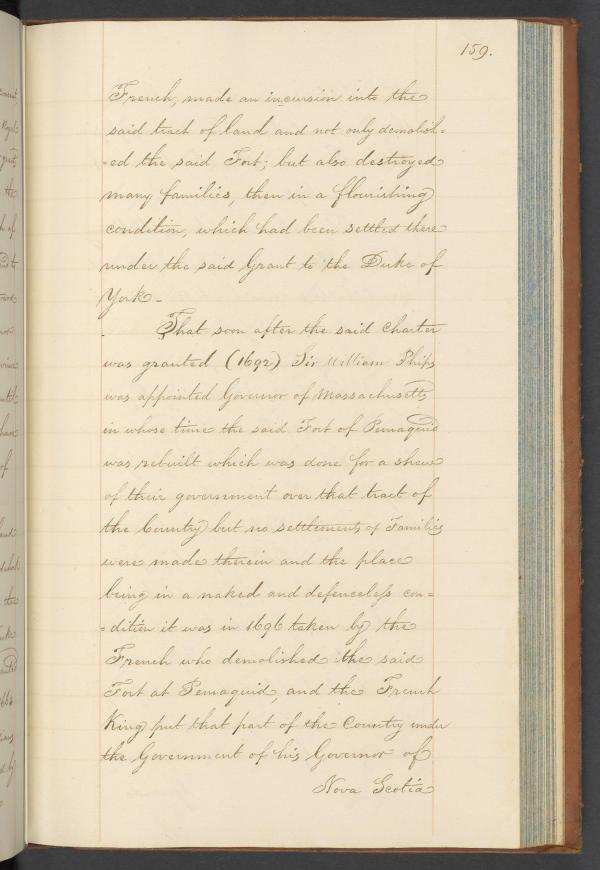 159.
French, made an incursion into the
said tract of land and not only demolish=
=ed the said Fort; but also destroyed
many families, then in a flourishing
condition, which had been settled there
under the said Grant to the Duke of
York_
That soon after the said Charter
was granted (1692) Sir William Phips
was appointed Governor of Massachusetts
in whose time the said Fort of Pemaquid
was rebuilt which was done for a shew
of their government over that tract of
the Country but no settlements of Families
were made therein and the place
being in a naked and defenceless con=
=dition it was in 1696 taken by the
French who demolished the said
Fort at Pemaquid, and the French
King put that part of the Country under
the Government of his Governor of
Nova Scotia